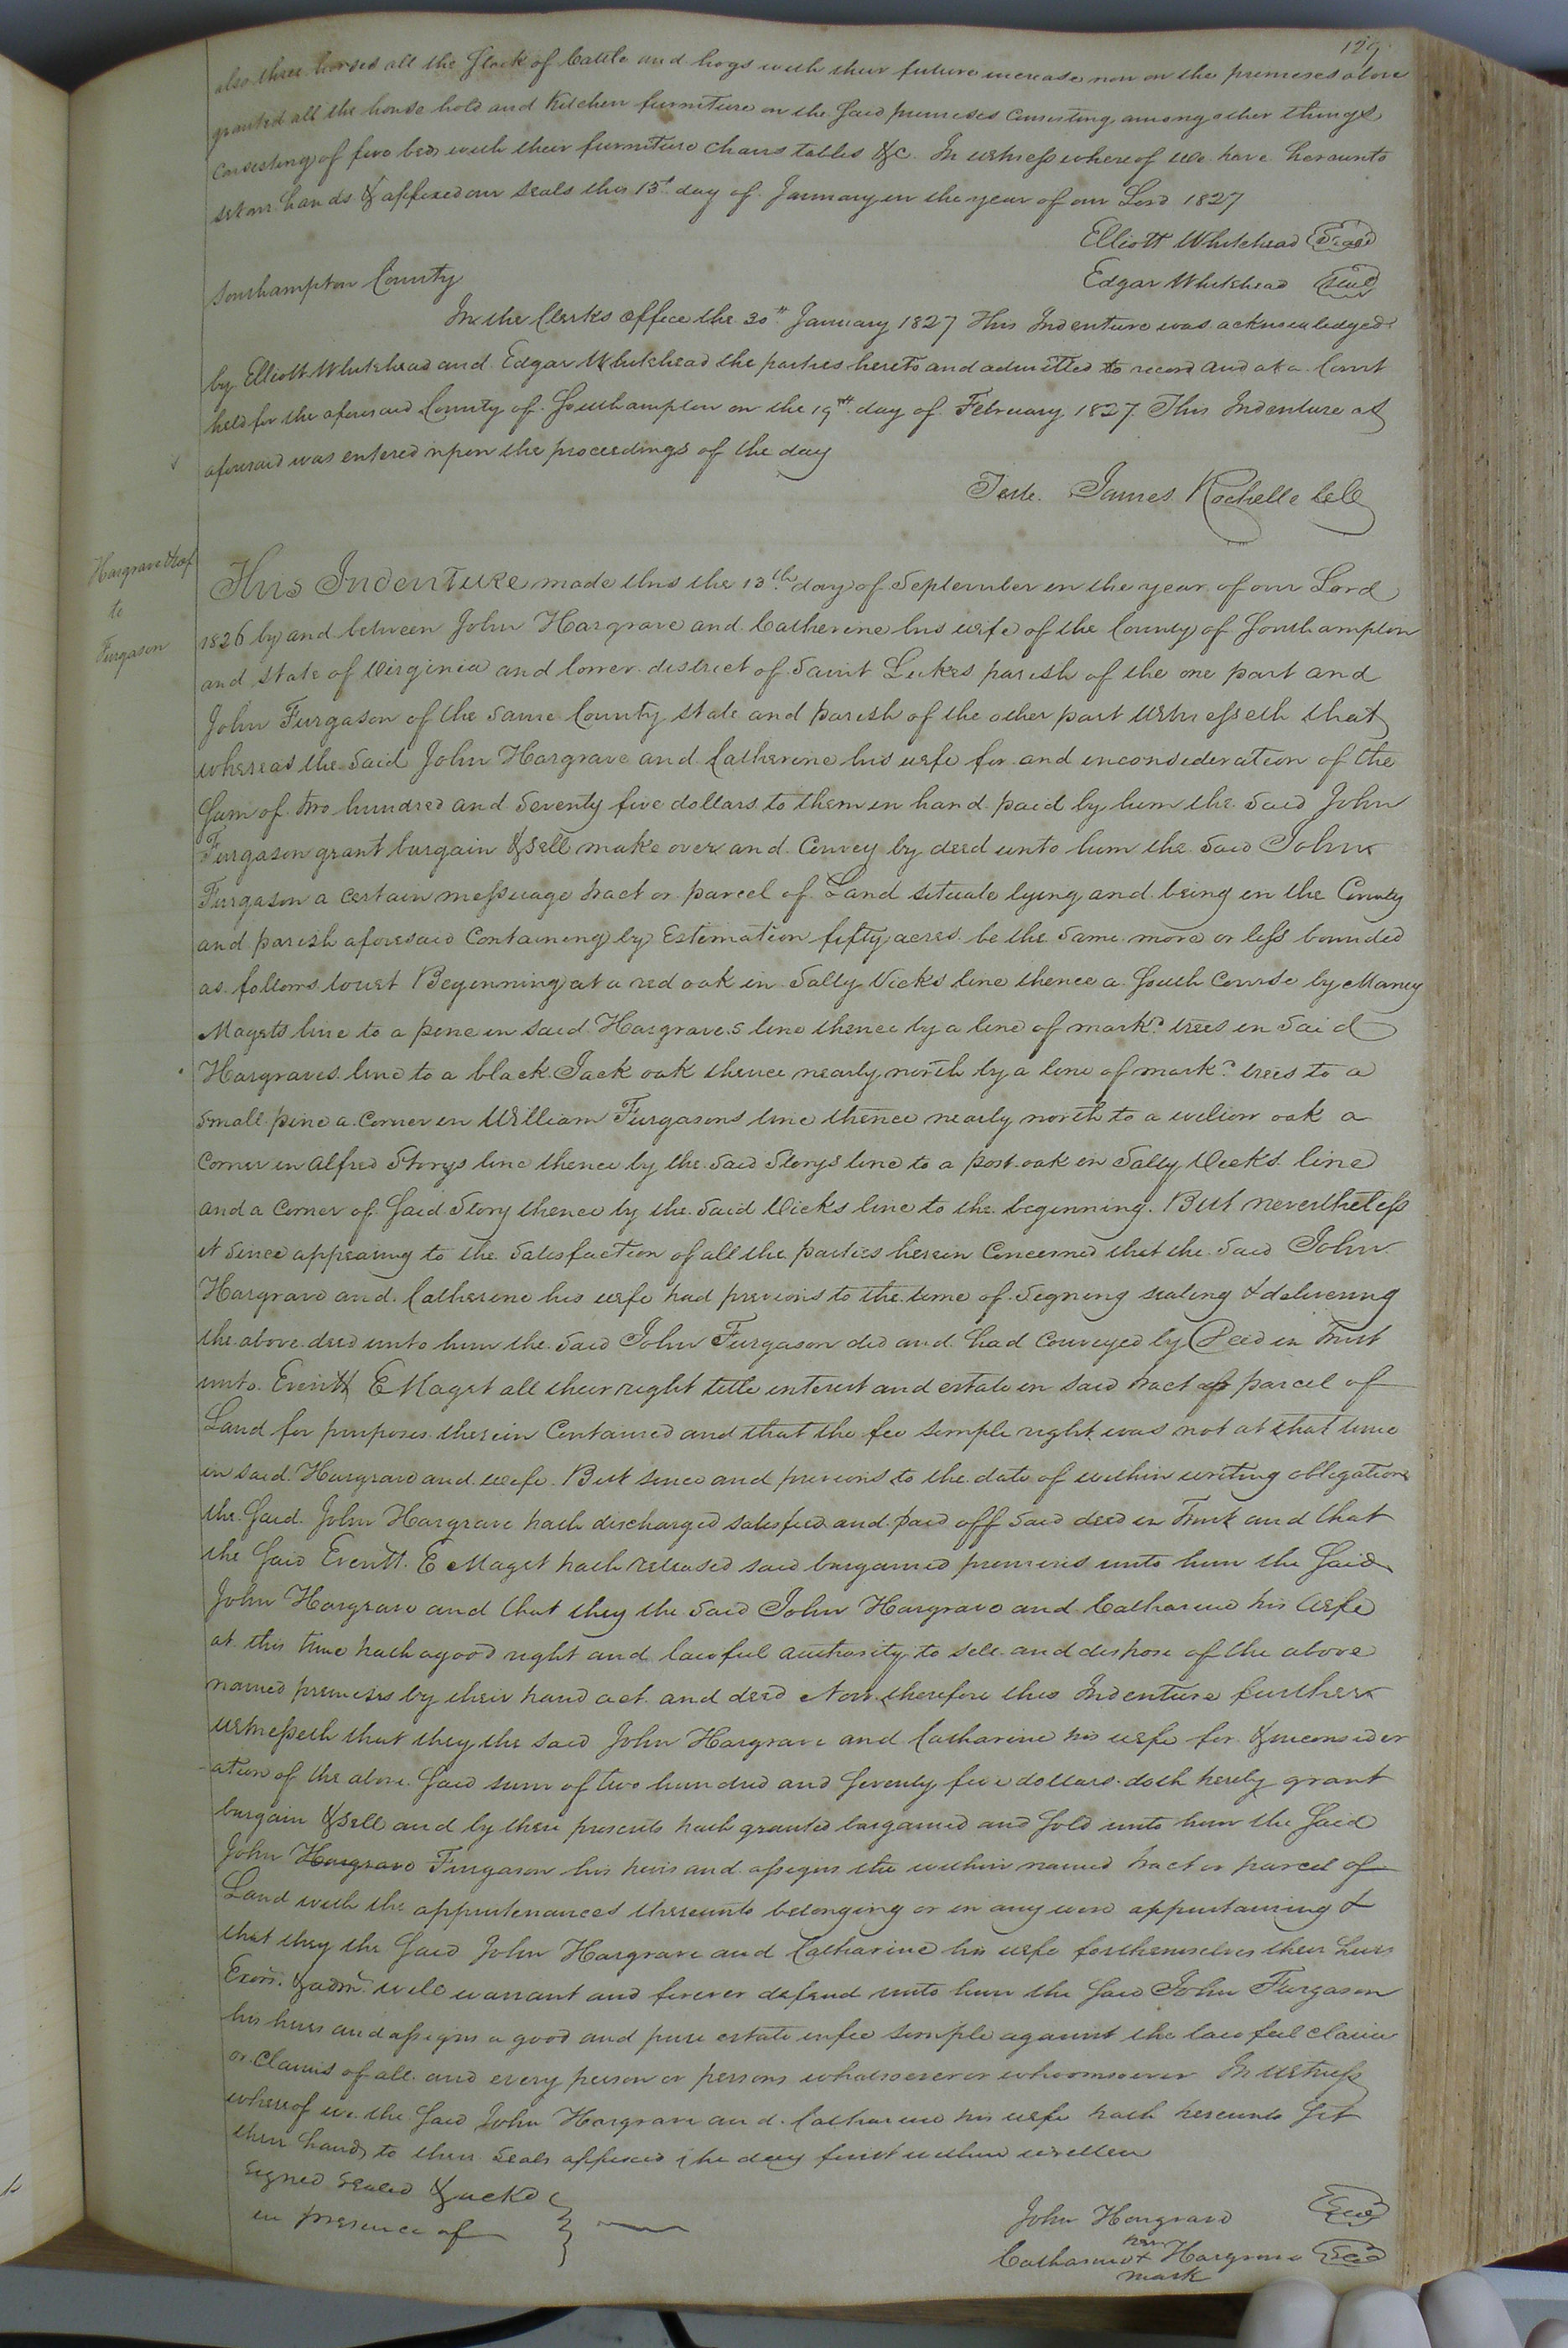 129
also three horses all the Stock of Cattle and hogs with their future increase now on the premises above
granted all the house hold and Kitchen furniture on the Said premises Consisting among other things
Consisting of five beds with their furniture chairs tables &c. In witness whereof we have hereunto
set our hands & affixed our seals this 15th day of January in the year of our Lord 1827
Elliott Whitehead Seal
Edgar Whitehead Seal
Southampton County
In the Clerks office the 30th January 1827 This Indenture was acknowledged
by Elliott Whitehead and Edgar Whitehead the parties hereto and admitted to record and at a Court
held for the aforesaid County of Southampton on the 19th day of February 1827 This Indenture as
aforesaid was entered upon the proceedings of the day
Teste. James Rochelle
Hargrave
to
Furgason
This Indenture made this the 13th day of September in the year of our Lord
1826 by and between John Hargrave and Catherine his wife of the County of Southampton
and State of Virginia and lower district of Saint Lukes parish of the one part and
John Furgason of the Same County state and parish of the other part Witnesseth that
whereas the Said John Hargrave and Catherine his wife for and inconsideration of the
Sum of two hundred and Seventy five dollars to them in hand paid by him the Said John
Furgason grant bargain & Sell make over and Convey by deed unto him the Said John
Furgason a certain messuage tract or parcel of Land situate lying and being in the County
and parish aforesaid Containing by Estimation fifty acres be the Same more or less bounded
as follows towit Beginning at a red oak in Sally Vicks line thence a South Course by
Magets line to a pine in said Hargraves line thence by a line of markd trees in Said
Hargraves line to a black Jack oak thence nearly north by a line of markd trees to a
Small pine a Corner in William Furgasons line thence nearly north to a willow oak a
Corner in Alfred Storys line thence by the Said Storys line to a post oak in Sally Vicks line
and a Corner of Said Story thence by the Said Vicks line to the beginning. But nevertheless
it Since appearing to the Satisfaction of all the parties herein Concerned that the Said John
Hargrave and Catherine his wife had previous to the time of Signing sealing & delivering
the above deed unto him the Said John Furgason did and had Conveyed by Deed in Trust
unto E Maget all their right title interest and estate in said tract or parcel of
Land for purposes therein Contained and that the fee simple right was not at that time
in said Hargrave and wife. But since and previous to the date of within writing obligation
the Said John Hargrave hath discharged satisfied and paid off Said deed in Trust and that
the Said E Maget hath released said bargained premises unto him the Said
John Hargrave and that they the Said John Hargrave and Catharine his wife
at this time hath a good right and lawful authority to sell and dispose of the above
named premises by their hand act and deed Now therefore this Indenture further
witnesseth that they the said John Hargrave and Catharine his wife for & inconsider
-ation of the above Said sum of two hundred and Seventy five dollars doth hereby grant
bargain & Sell and by these presents hath granted bargained and Sold unto him the Said
John Hargrave Furgason his heirs and assigns the within named tract or parcel of
Land with the appurtenances thereunto belonging or in any wise appurtaining &
that they the Said John Hargrave and Catharine his wife for themselves their heirs
Exors. & admrs. will warrant and forever defend unto him the Said John Furgason
his heirs and assigns a good and pure estate in fee simple against the lawful claim
or Claims of all and every person or persons whatsoever or whoomsoever In witness
whereof we the Said John Hargrave and Catharine his wife hath hereunto Set
their hands to their Seals affixed the day first within written
Signed Sealed & ackd
in presence of
John Hargrave Seal
her
Catharine x Hargrave Seal
mark